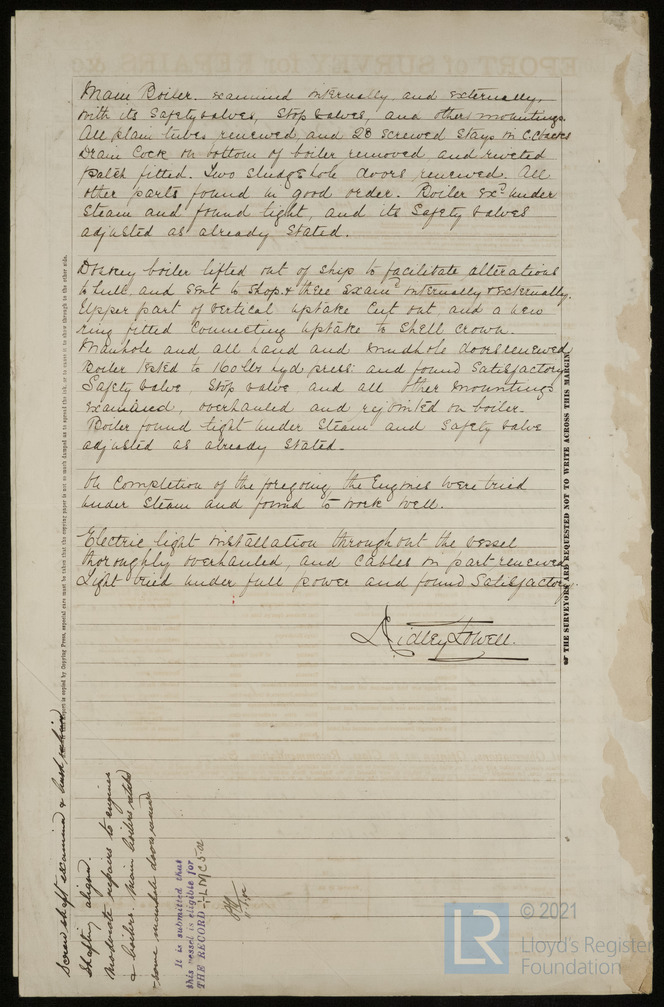 Main Boiler. examined internally and externally,
with its Safety valves, Stop valves, and other mountings.
All plain tubes renewed, and 28 Screwed Stays in C.C backs
Drain Cock on bottom of boiler removed and riveted
patch fitted. Two sludge hole doors renewed. All
other parts found in good order. Boiler exd under
Steam and found tight, and its Safety valves
adjusted as already stated.
Donkey boiler lifted out of ship to facilitate alterations
to hull, and sent to Shop & there examd internally & externally.
Upper part of vertical uptake cut out and a new
ring fitted connecting uptake to shell crown.
Manhole and all hand and mudhole doors renewed
Boiler tested to 160 lbs hyd press: and found Satisfactory
Safety valve, Stop valve and all other mountings
examined, overhauled and rejointed on boiler.
Boiler found tight under Steam and Safety valve
adjusted as already stated.
On completion of the foregoing the Engines were tried
under Steam and found to work well.
Electric light installation throughout the vessel
thoroughly overhauled, and cables in part renewed
Light tried under full power and found Satisfactory.
Ridley Howell.
OF THE SURVEYORS ARE REQUESTED NOT TO WRITE ACROSS THIS MARGIN.
report is copied by Copying Press, especial care must be taken that the copying paper is not so much damped as to spread the ink, or to cause it to show through to the other side.
Screw shaft examined &
Shafting alignd.
Moderate repairs to engines
& boilers. Main boilers
some manhole doors renewed
It is submitted that
this vessel is eligible for
THE RECORD + LMC 5.02
© 2021
LR
Lloyd's Register
Foundation